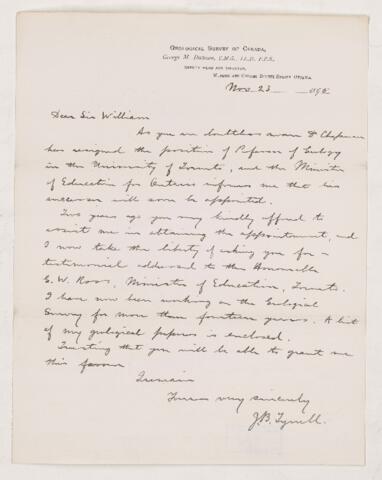 GEOLOGICAL SURVEY OF CANADA,
George M. Dawson, C.M.G., LL.D., F.R.S.,
DEPUTY HEAD AND DIRECTOR.
Nov. 23 1895
Dear Sir William
As you are doubtless aware Dr Chapman
has resigned the position of Professor of Geology
in the University of Toronto, and the Minister
of Education for Ontario informs me that his
successor will soon be appointed.
Two years ago you very kindly offered to
assist me in attaining the appointment, and
I now take the liberty of asking you for a
testimonial addressed to the Honourable
G. W. Ross, Minister of Education, Toronto.
I have now been working on the Geological
Survey for more than fourteen years. A list
of my geological papers is enclosed.
Trusting that you will be able to grant me
this favour
I remain
Yours very sincerely
J.B. Tyrrell.